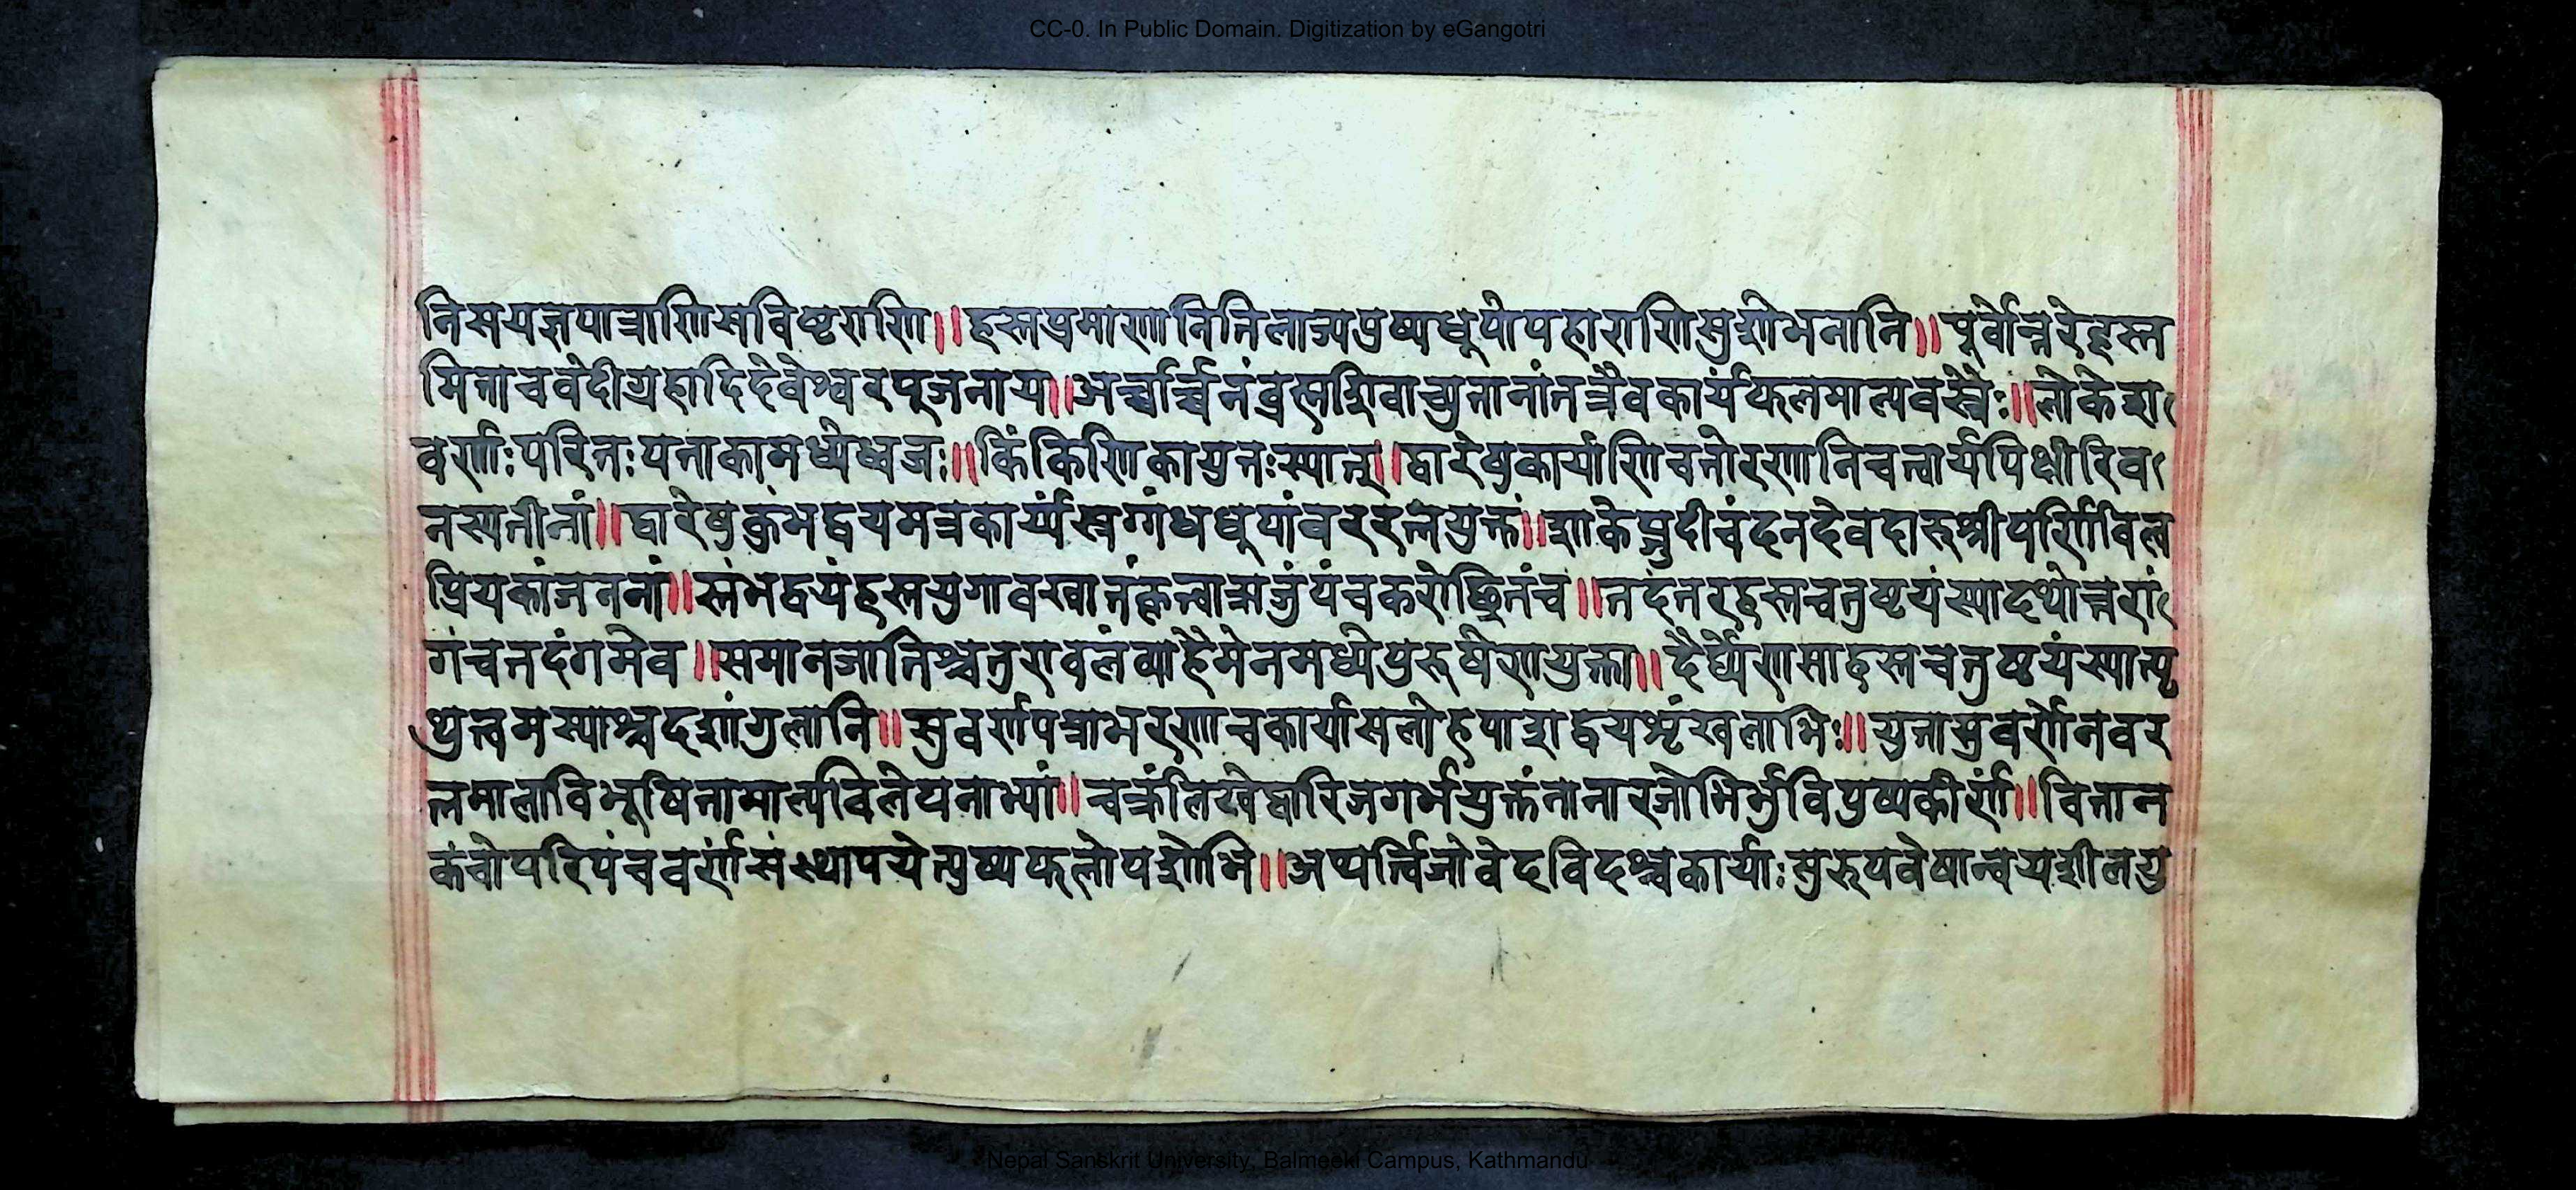 CC-0. In Public Domain. Digitization by eGangotri
निसयज्ञपात्राणिसविष्टराणि॥हस्तप्रमाणानितिलाज्यपुष्पधूपोपहाराणिसुशोभनानि॥पूर्वोत्तरेहस्त
मिताचवेदीग्रहादिदेवेश्वरपूजनाय॥अर्च्चार्च्चनंब्रह्मशिवाच्युतानांतत्रैवकार्यंफलमाल्यवस्त्रैः॥लोकेश
वर्णाःपरितःपताकामध्येध्वजः॥किंकिणिकायुतःस्यात्॥द्वारेषुकार्याणिचतोरणानिचत्वार्यपिक्षीरिव
नस्पतीनां॥द्वारेषुकुंभद्वयमत्रकार्य्यंस्रग्गंधधूपांबररत्नयुक्तं॥शाकेङ्गुदीचंदनदेवदारुश्रीपर्णिविल्व
प्रियकांजननां॥स्तंभद्वयंहस्तयुगावखातंकृत्वाऋजुंपंचकरोछ्रितंच॥तदंतरहस्तचतुष्टयंस्यादथोत्तरां
गंचतदंगमेव॥समानजातिश्चतुरावलंव्याहैमेनमध्येपुरुषेणयुक्ता॥दैर्घ्येणसाहस्तचतुष्टयंस्यात्पृ
थुत्वमस्याश्चदशांगुलानि॥सुवर्णपत्राभरणाचकार्यासलोहपाशद्वयशृंखलाभिः॥युतासुवर्णेनवर
त्नमालाविभूषितामाल्यविलेपनाभ्यां॥चक्रंलिखेद्वारिजगर्भयुक्तंनानारजोभिर्भुविपुष्पकीर्णं॥वितान
कंचोपरिपंचवर्णंसंस्थापयेत्पुष्पफलोपशोभि॥अथर्त्विजोवेदविदश्चकार्याःसुरूपवेषान्वयशीलयु
Nepal Sanskrit University, Balmeeki Campus, Kathmandu